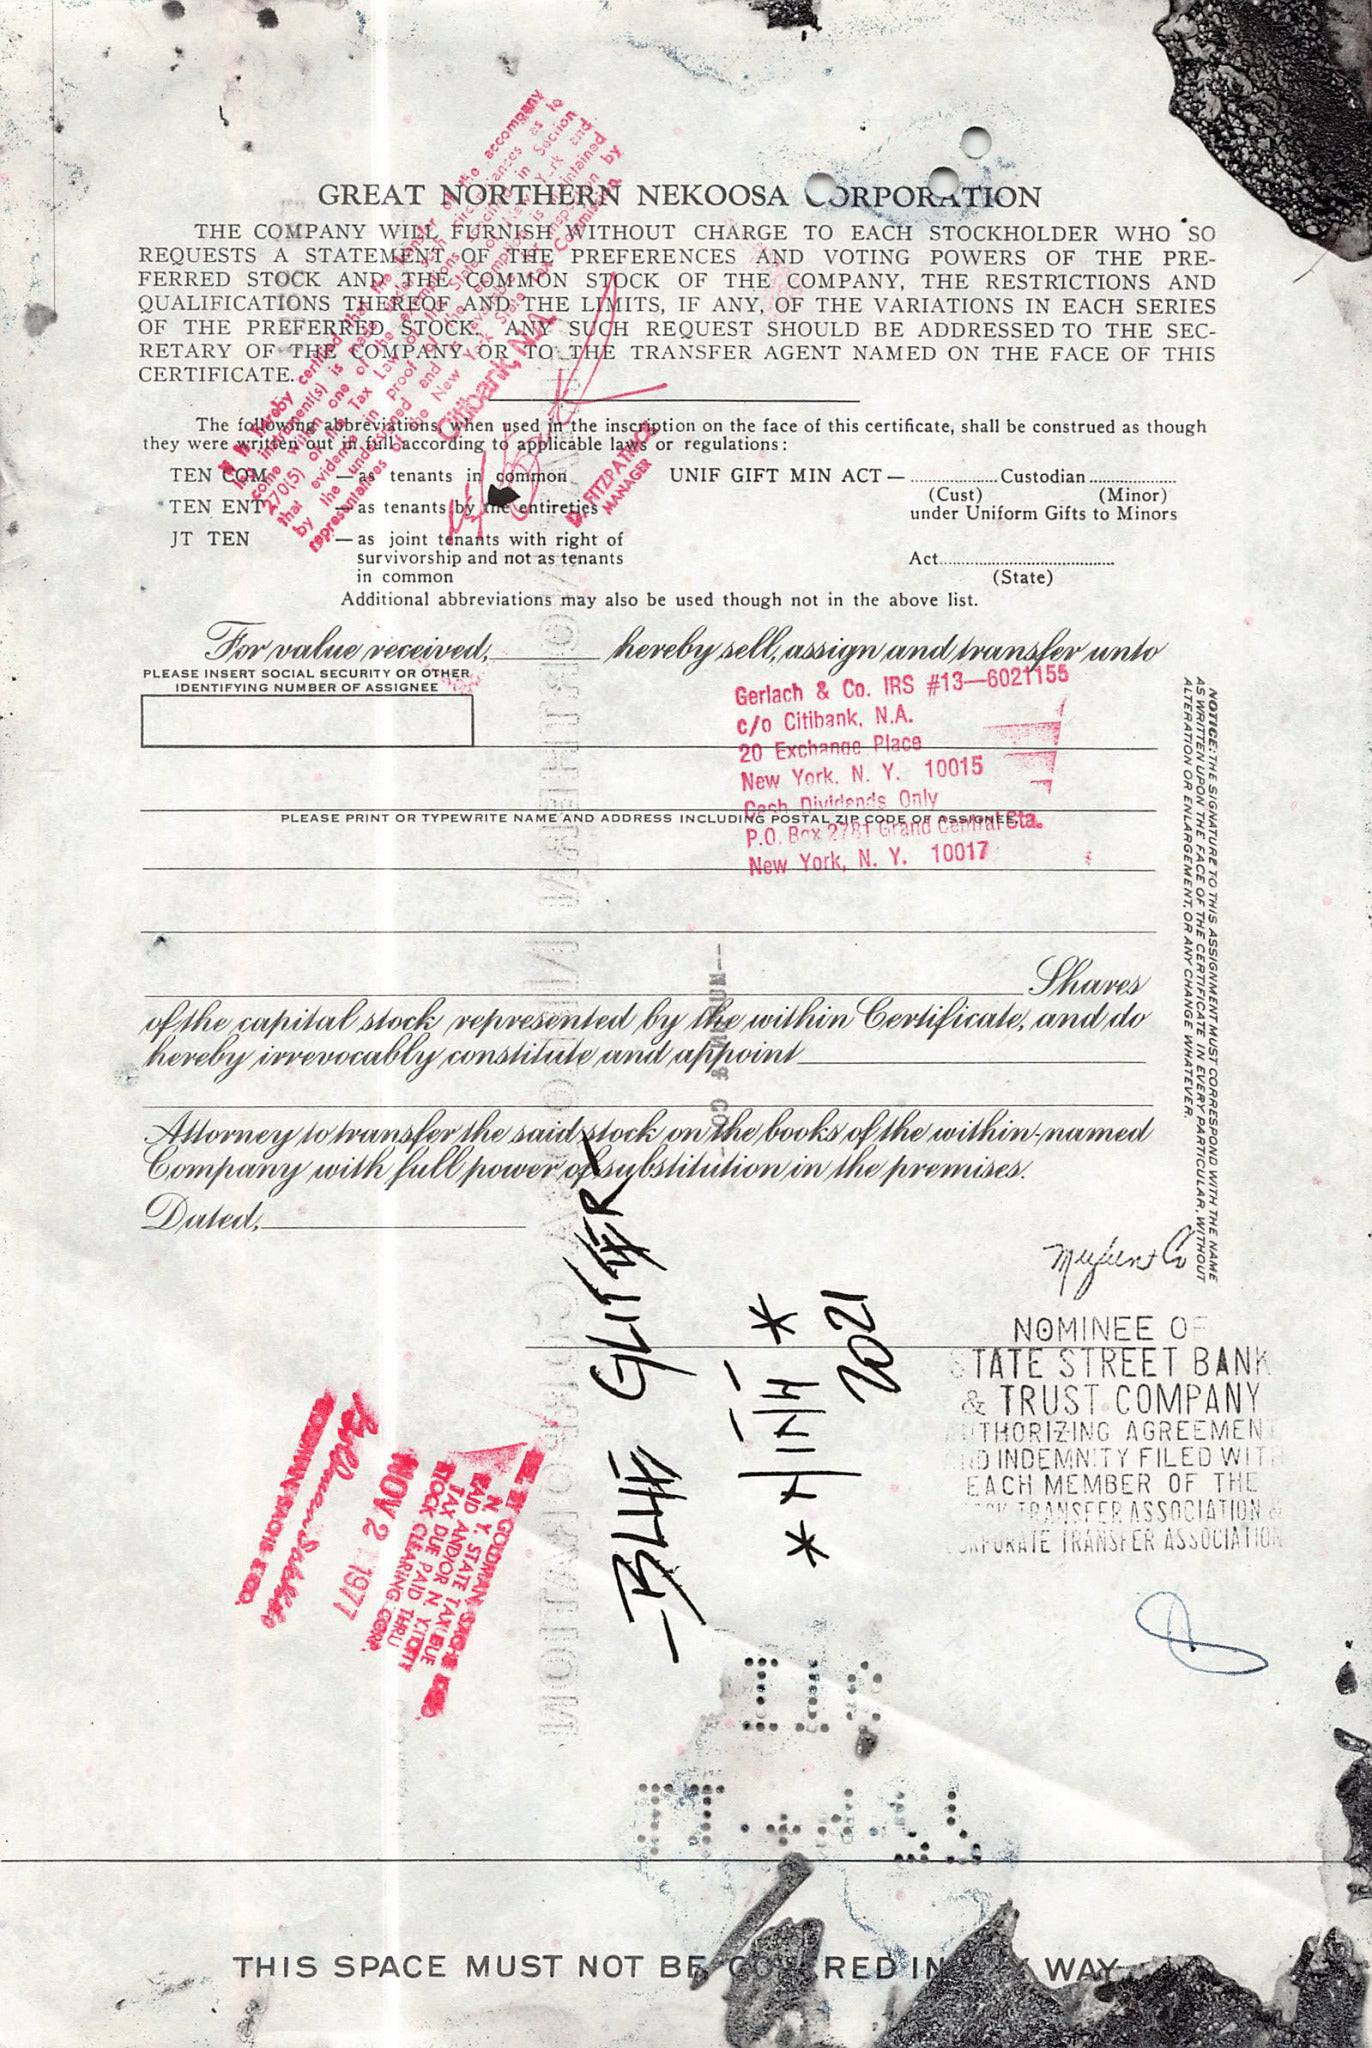 GREAT NORTHERN NEKOOSA CORPORATION
THE COMPANY WILL FURNISH WITHOUT CHARGE TO EACH STOCKHOLDER WHO SO
REQUESTS A STATEMENT OF THE PREFERENCES AND VOTING POWERS OF THE PRE-
FERRED STOCK AND THE COMMON STOCK OF THE COMPANY, THE RESTRICTIONS AND
QUALIFICATIONS THEREOF AND THE LIMITS, IF ANY, OF THE VARIATIONS IN EACH SERIES
OF THE PREFERRED STOCK. ANY SUCH REQUEST SHOULD BE ADDRESSED TO THE SEC-
RETARY OF THE COMPANY OR TO THE TRANSFER AGENT NAMED ON THE FACE OF THIS
CERTIFICATE.
Citibank, N.A.
D. FITZPATRICK
MANAGER
The following abbreviations, when used in the inscription on the face of this certificate, shall be construed as though
they were written out in full according to applicable laws or regulations:
TEN COM — as tenants in common
TEN ENT — as tenants by the entireties
JT TEN — as joint tenants with right of
survivorship and not as tenants
in common
UNIF GIFT MIN ACT — .................... Custodian ....................
(Cust) (Minor)
under Uniform Gifts to Minors
Act........................................
(State)
Additional abbreviations may also be used though not in the above list.
For value received, hereby sell, assign and transfer unto
PLEASE INSERT SOCIAL SECURITY OR OTHER
IDENTIFYING NUMBER OF ASSIGNEE
Gerlach & Co. IRS #13—6021155
c/o Citibank, N.A.
20 Exchange Place
New York, N. Y. 10015
Cash Dividends Only
P.O. Box 2781 Grand Central Sta.
New York, N. Y. 10017
PLEASE PRINT OR TYPEWRITE NAME AND ADDRESS INCLUDING POSTAL ZIP CODE OF ASSIGNEE.
Shares
of the capital stock represented by the within Certificate, and do
hereby irrevocably constitute and appoint
Attorney to transfer the said stock on the books of the within-named
Company with full power of substitution in the premises.
Dated,
NOTICE: THE SIGNATURE TO THIS ASSIGNMENT MUST CORRESPOND WITH THE NAME
AS WRITTEN UPON THE FACE OF THE CERTIFICATE IN EVERY PARTICULAR, WITHOUT
ALTERATION OR ENLARGEMENT, OR ANY CHANGE WHATEVER.
NOMINEE OF
STATE STREET BANK
& TRUST COMPANY
AUTHORIZING AGREEMENT
AND INDEMNITY FILED WITH
EACH MEMBER OF THE
STOCK TRANSFER ASSOCIATION &
CORPORATE TRANSFER ASSOCIATION
GOLDMAN SACHS & CO.
NOV 2 1977
GOLDMAN SACHS & CO.
N. Y. STATE TAX DUE
PAID AND/OR N. Y. CITY
TAX DUE PAID THRU
STOCK CLEARING CORP.
GLITTER
2021
THIS SPACE MUST NOT BE COVERED IN ANY WAY